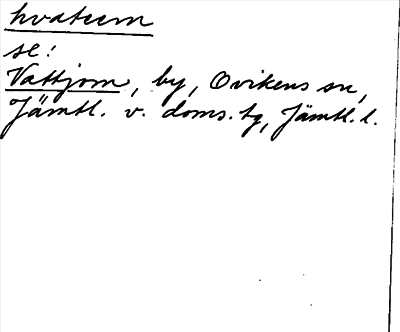 hvateem
se:
Vattjom, by, Ovikens sn,
Jämtl. v. doms. tg, Jämtl. l.